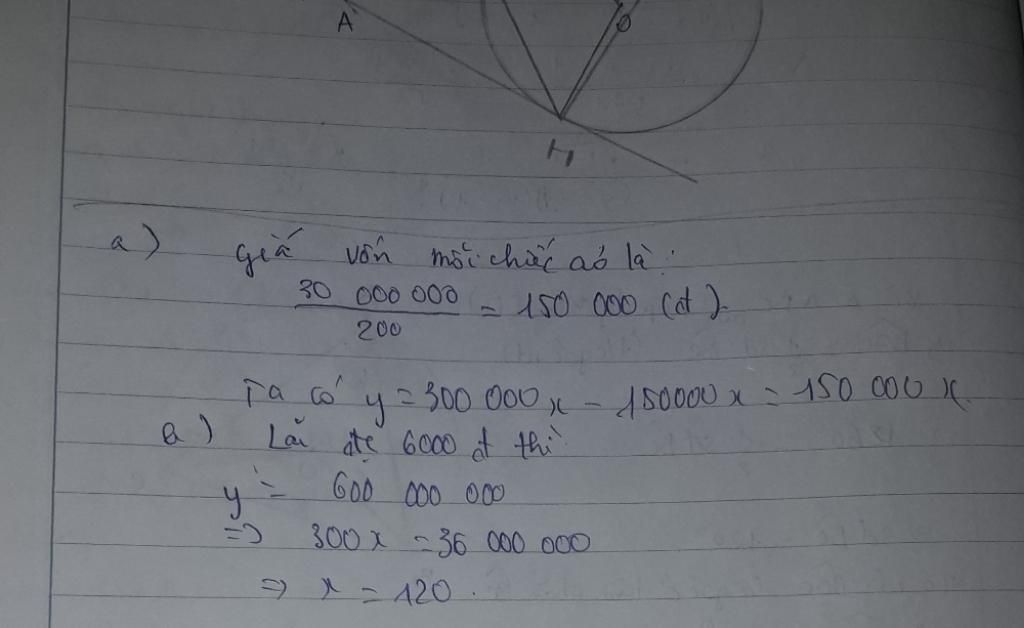 A
O
H
a) giá vốn mỗi chiếc áo là:
30 000 000
= 150 000 (đ).
200
Ta có y = 300 000x - 150000x = 150 000x.
a) Lãi đc 6000 đ thì
y = 600 000 000
=> 300x = 36 000 000
=> x = 120.